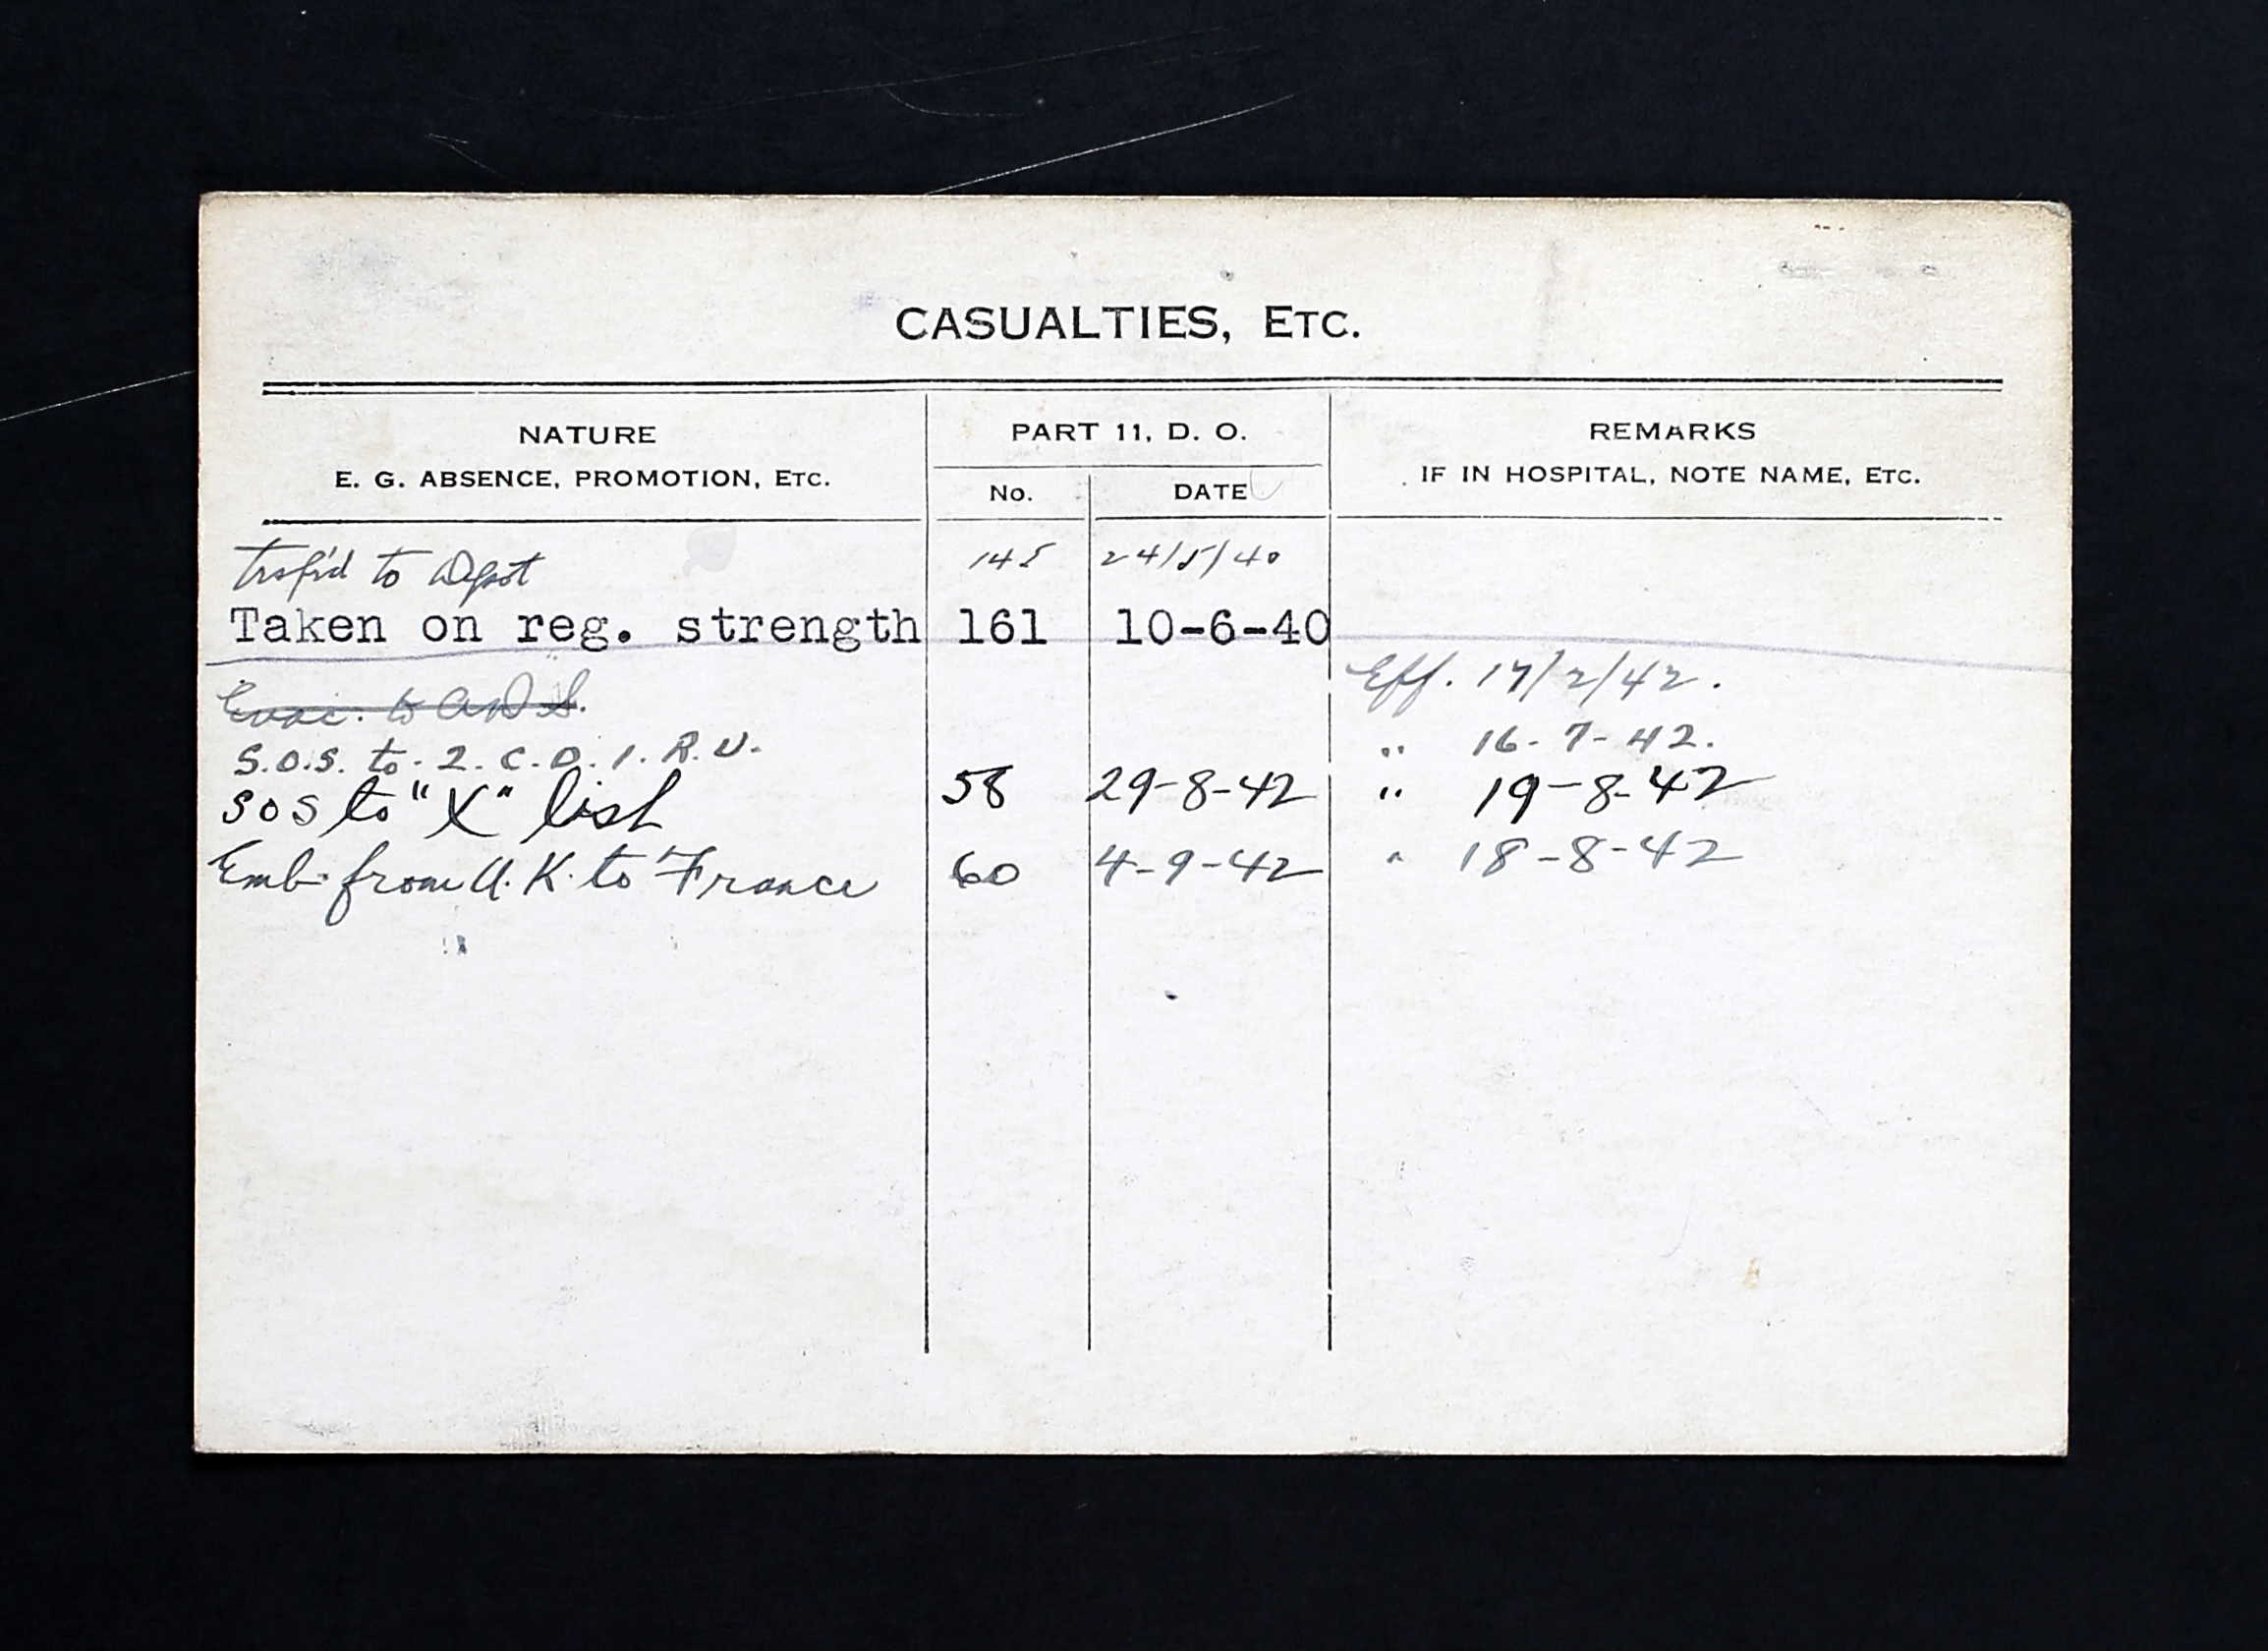 CASUALTIES, ETC.
NATURE PART 11, D. O. REMARKS
E. G. ABSENCE, PROMOTION, ETC. IF IN HOSPITAL, NOTE NAME, ETC.
No. DATE
Trsf'd to Depot 145 24/5/40
Taken on reg. strength 161 10-6-40
Evac. to ADS. Eff. 17/2/42.
S.O.S. to. 2. C.D.I.R.U. " 16-7-42.
SOS to "X" list 58 29-8-42 " 19-8-42
Emb. from U.K. to France 60 4-9-42 " 18-8-42